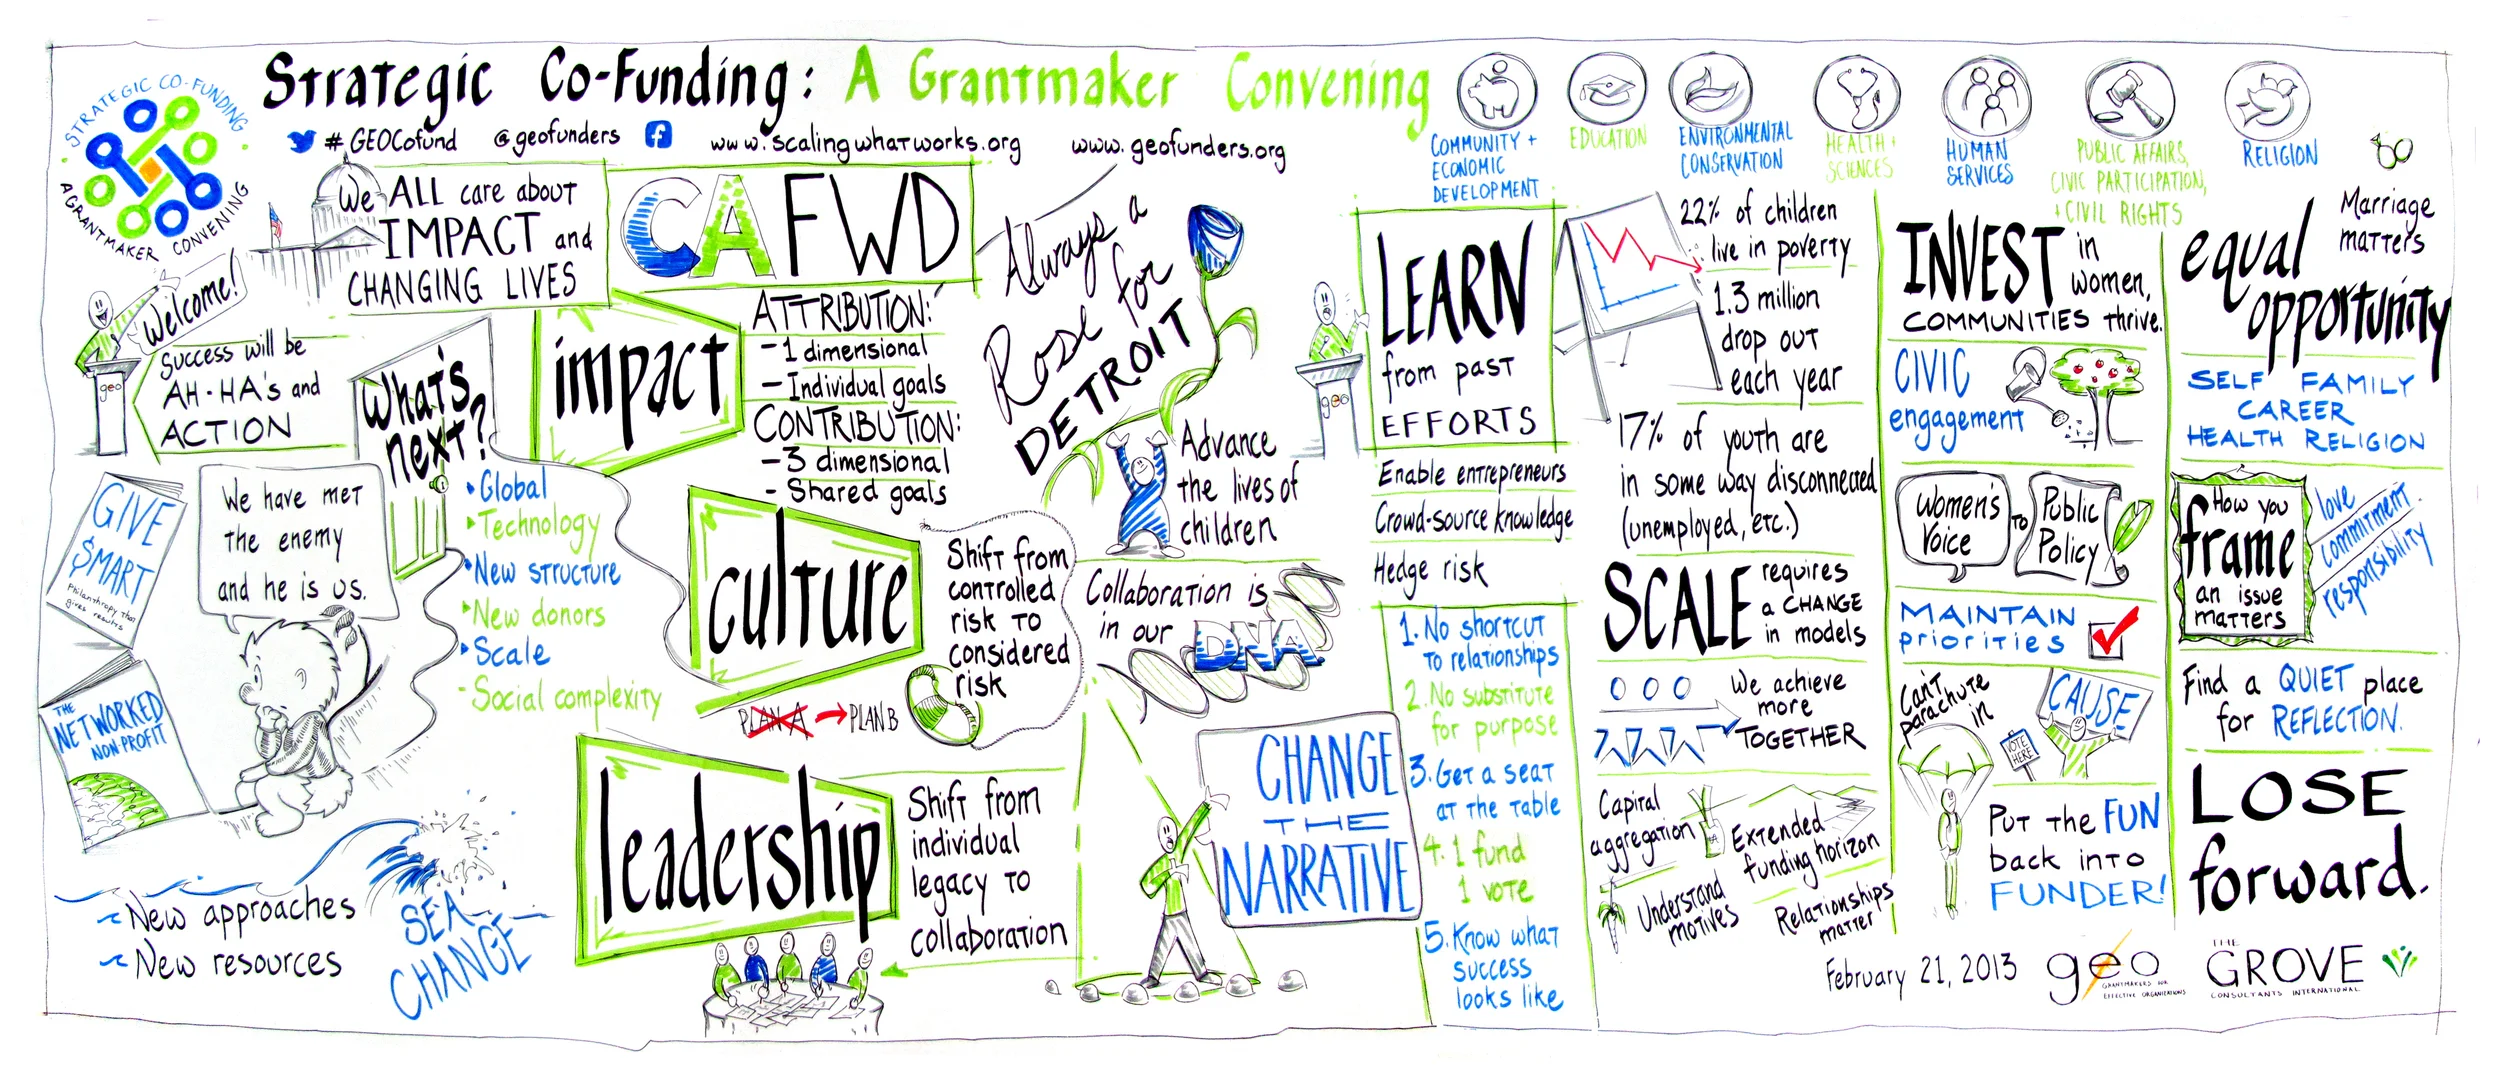 STRATEGIC CO-FUNDING
A GRANTMAKER CONVENING
Strategic Co-Funding: A Grantmaker Convening
# GEOCofund @geofunders www.scalingwhatworks.org www.geofunders.org
COMMUNITY +
ECONOMIC
DEVELOPMENT
EDUCATION
ENVIRONMENTAL
CONSERVATION
HEALTH +
SCIENCES
HUMAN
SERVICES
PUBLIC AFFAIRS,
CIVIC PARTICIPATION,
+ CIVIL RIGHTS
RELIGION
Welcome!
geo
Success will be
AH-HA's and
ACTION
We ALL care about
IMPACT and
CHANGING LIVES
CA FWD
What's
next?
Global
Technology
New structure
New donors
Scale
- Social complexity
GIVE
$MART
Philanthropy that
gives results
THE
NETWORKED
NON-PROFIT
We have met
the enemy
and he is us.
New approaches
New resources
SEA
CHANGE
impact
ATTRIBUTION:
- 1 dimensional
- Individual goals
CONTRIBUTION:
- 3 dimensional
- Shared goals
culture
Shift from
controlled
risk to
considered
risk
PLAN A → PLAN B
leadership
Shift from
individual
legacy to
collaboration
Always a
Rose for
DETROIT
Advance
the lives of
children
Collaboration is
in our DNA
CHANGE
THE
NARRATIVE
geo
LEARN
from past
EFFORTS
Enable entrepreneurs
Crowd-source knowledge
Hedge risk
1. No shortcut
to relationships
2. No substitute
for purpose
3. Get a seat
at the table
4. 1 fund
1 vote
5. Know what
success
looks like
22% of children
live in poverty
1.3 million
drop out
each year
17% of youth are
in some way disconnected
(unemployed, etc.)
SCALE requires
a CHANGE
in models
We achieve
more
TOGETHER
Capital
aggregation
Extended
funding horizon
Understand
motives
Relationships
matter
INVEST in
women,
COMMUNITIES thrive.
CIVIC
engagement
Women's
Voice
TO
Public
Policy
MAINTAIN
priorities
Can't
parachute
in
VOTE
HERE
CAUSE
Put the FUN
back into
FUNDER!
Marriage
matters
equal
opportunity
SELF FAMILY
CAREER
HEALTH RELIGION
How you
frame
an issue
matters
love
commitment
responsibility
Find a QUIET place
for REFLECTION.
LOSE
forward.
February 21, 2013
geo
GRANTMAKERS FOR
EFFECTIVE ORGANIZATIONS
THE
GROVE
CONSULTANTS INTERNATIONAL